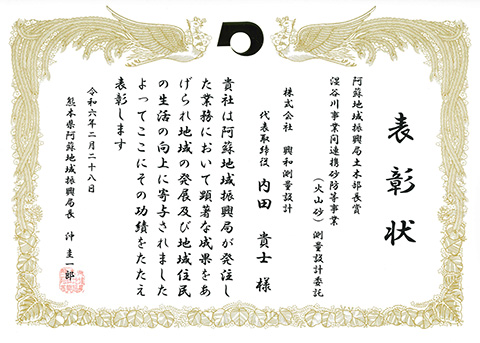 表彰状
阿蘇地域振興局土木部長賞
湿谷川事業間連携砂防等事業
（火山砂）測量設計委託
株式会社 興和測量設計
代表取締役 内田 貴士 様
貴社は阿蘇地域振興局が発注し
た業務において顕著な成果をあ
げられ地域の発展及び地域住民
の生活の向上に寄与されました
よってここにその功績をたたえ
表彰します
令和六年二月二十八日
熊本県阿蘇地域振興局長 沖 圭一郎